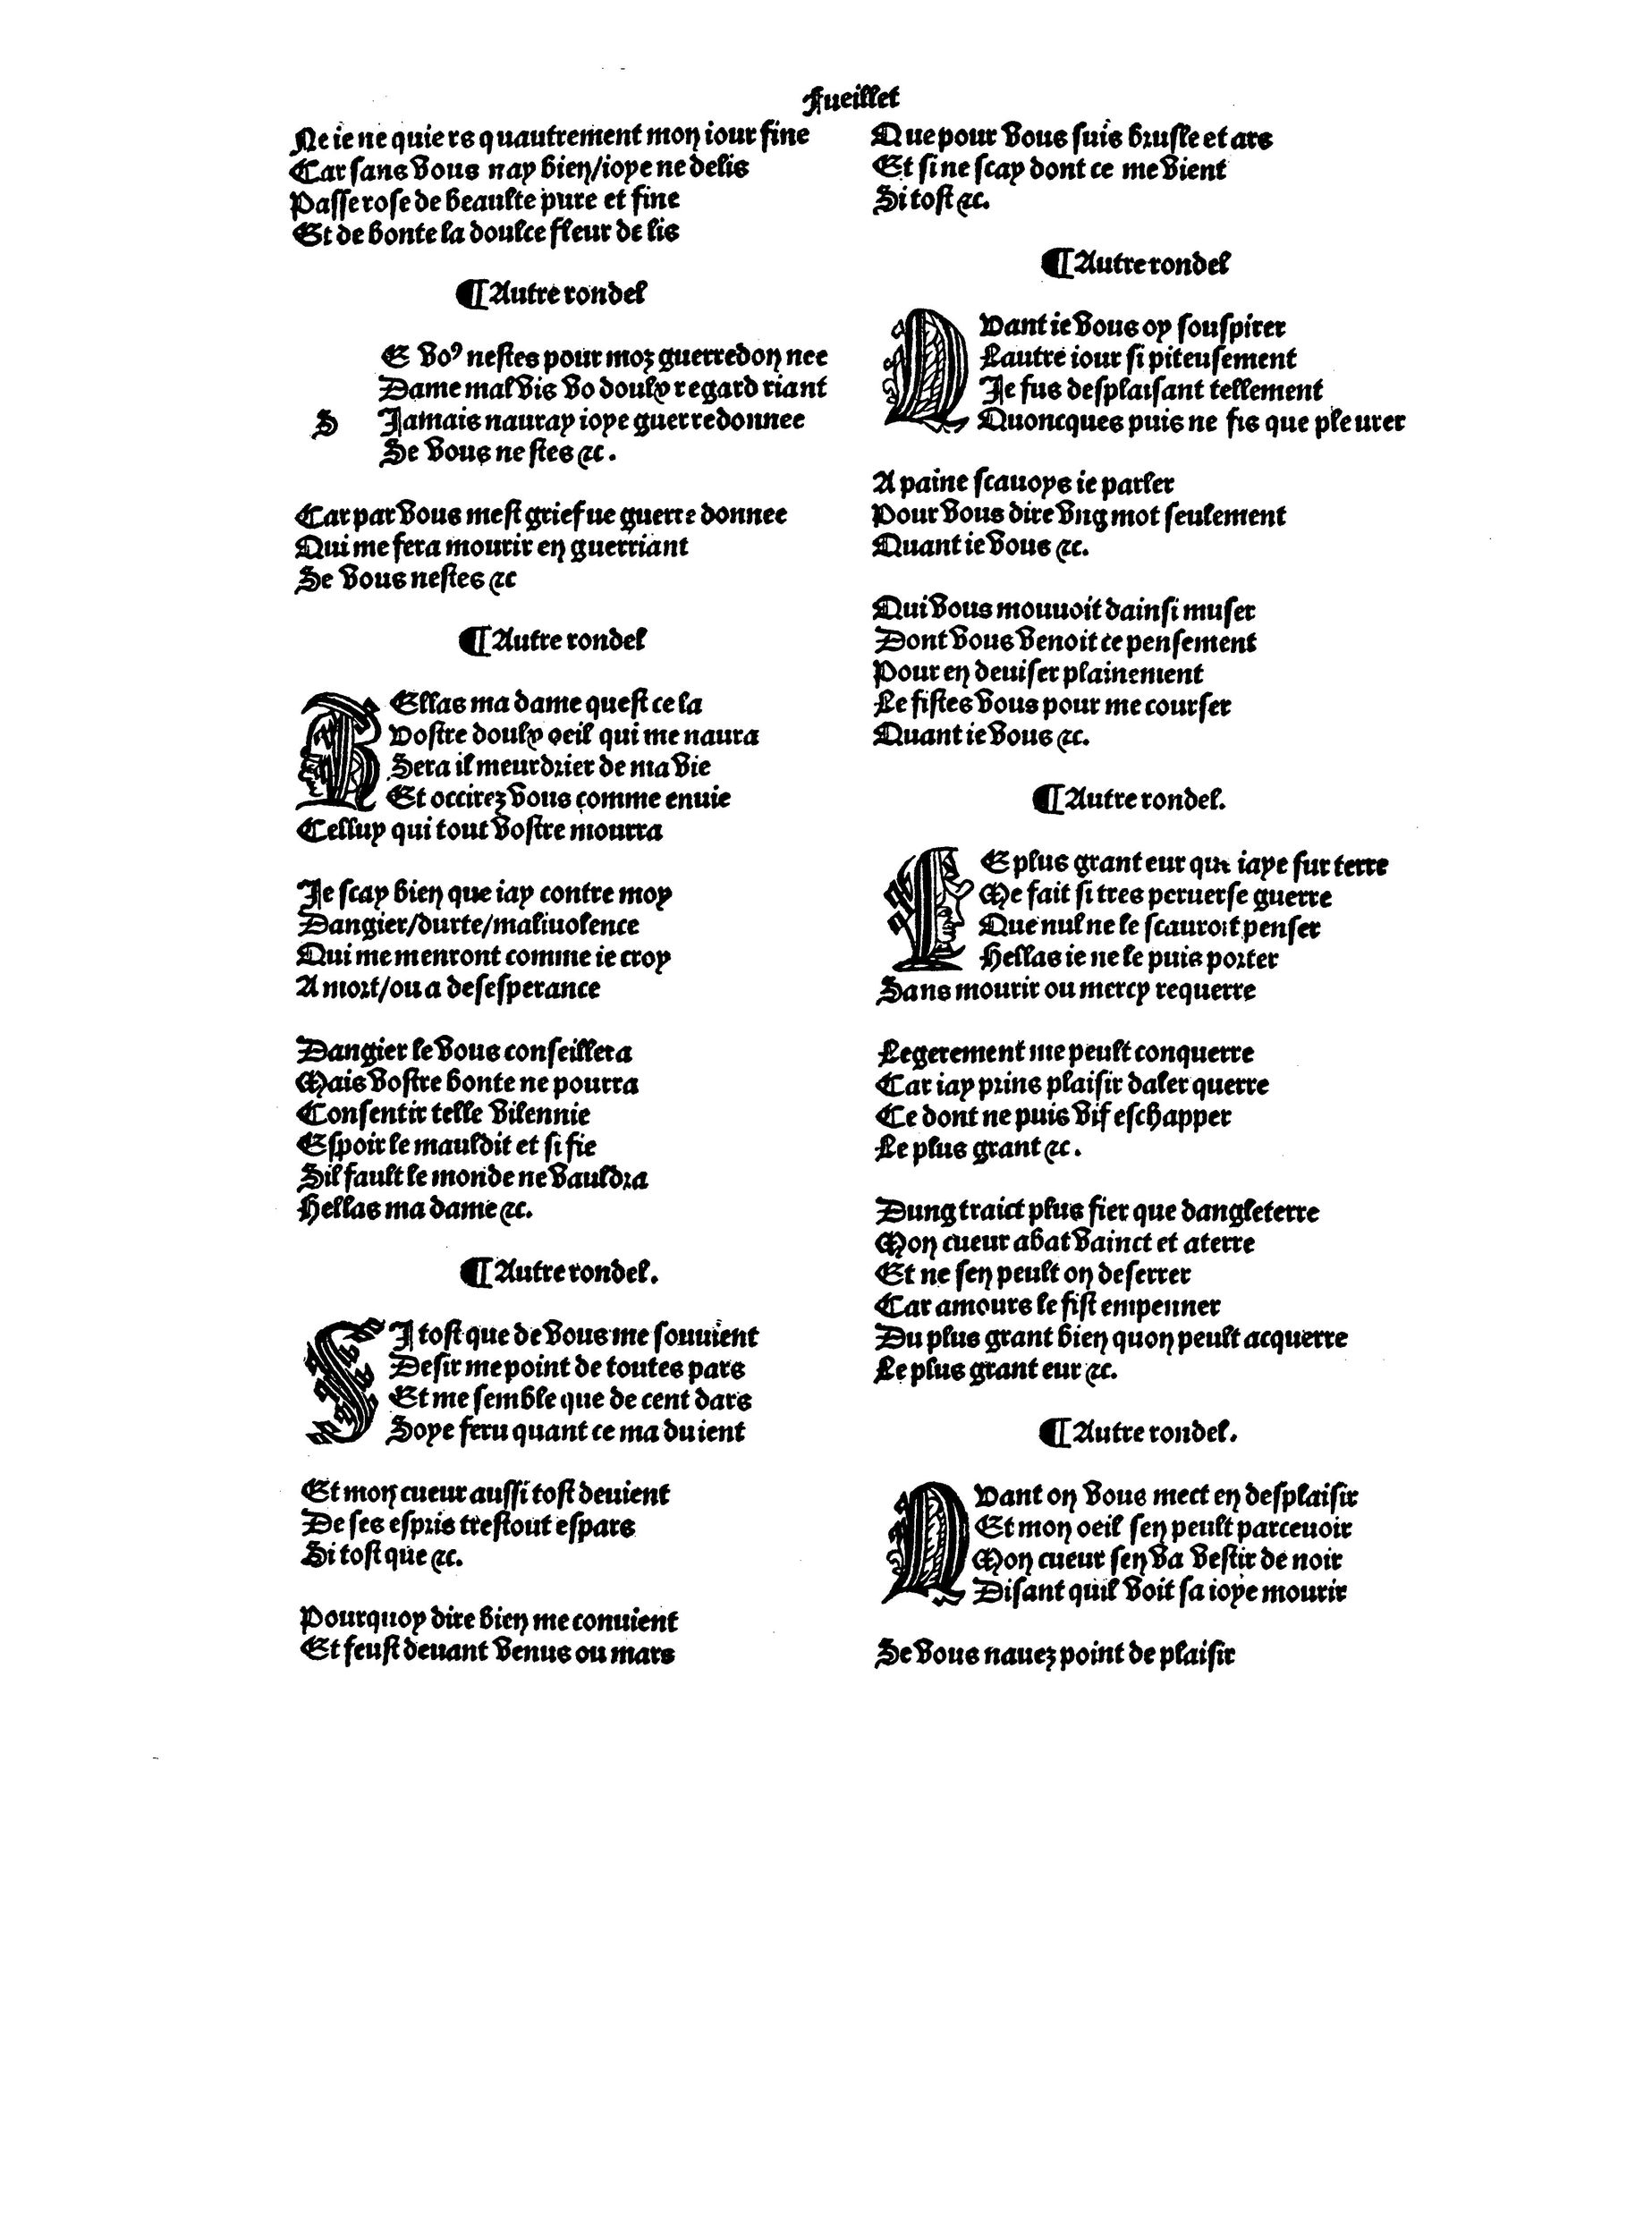 Fueillet
Ne ie ne quiers quautrement mon iour fine
Car sans vous nay bien/ioye ne delis
Passe rose de beaulte pure et fine
Et de bonte la doulce fleur de lis
¶Autre rondel
SE voꝰ nestes pour moz guerredon nee
Dame mal vis vo doulx regard riant
Jamais nauray ioye guerredonnee
Se vous nestes ⁊c.
Car par vous mest griefue guerre donnee
Qui me fera mourir en guerriant
Se vous nestes ⁊c
¶Autre rondel
HEllas ma dame quest ce la
Vostre doulx oeil qui me naura
Sera il meurdrier de ma vie
Et occirez vous comme enuie
Celluy qui tout vostre mourra
Je scay bien que iay contre moy
Dangier/durte/maliuolence
Qui me menront comme ie croy
A mort/ou a desesperance
Dangier le vous conseillera
Mais vostre bonte ne pourra
Consentir telle vilennie
Espoir le mauldit et si fie
Sil fault le monde ne vauldra
Hellas ma dame ⁊c.
¶Autre rondel.
SI tost que de vous me souuient
Desir me point de toutes pars
Et me semble que de cent dars
Soye feru quant ce ma duient
Et mon cueur aussi tost deuient
De ses espris trestout espars
Si tost que ⁊c.
Pourquoy dire bien me conuient
Et feust deuant venus ou mars
Que pour vous suis brusle et ars
Et si ne scay dont ce me vient
Si tost ⁊c.
¶Autre rondel
QVant ie vous oy souspirer
Lautre iour si piteusement
Je fus desplaisant tellement
Quoncques puis ne fis que pleurer
A paine scauoys ie parler
Pour vous dire vng mot seulement
Quant ie vous ⁊c.
Qui vous mouuoit dainsi muser
Dont vous venoit ce pensement
Pour en deuiser plainement
Le fistes vous pour me courser
Quant ie vous ⁊c.
¶Autre rondel.
LE plus grant eur que iaye sur terre
Me fait si tres peruerse guerre
Que nul ne le scauroit penser
Hellas ie ne le puis porter
Sans mourir ou mercy requerre
Legerement me peult conquerre
Car iay prins plaisir daler querre
Ce dont ne puis vif eschapper
Le plus grant ⁊c.
Dung traict plus fier que dangleterre
Mon cueur abat vainct et aterre
Et ne sen peult on deserrer
Car amours le fist empenner
Du plus grant bien quon peult acquerre
Le plus grant eur ⁊c.
¶Autre rondel.
QVant on vous mect en desplaisir
Et mon oeil sen peult parceuoir
Mon cueur sen va vestir de noir
Disant quil voit sa ioye mourir
Se vous nauez point de plaisir